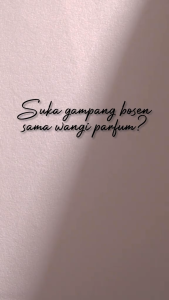 Suka gampang bosen
sama wangi parfum?